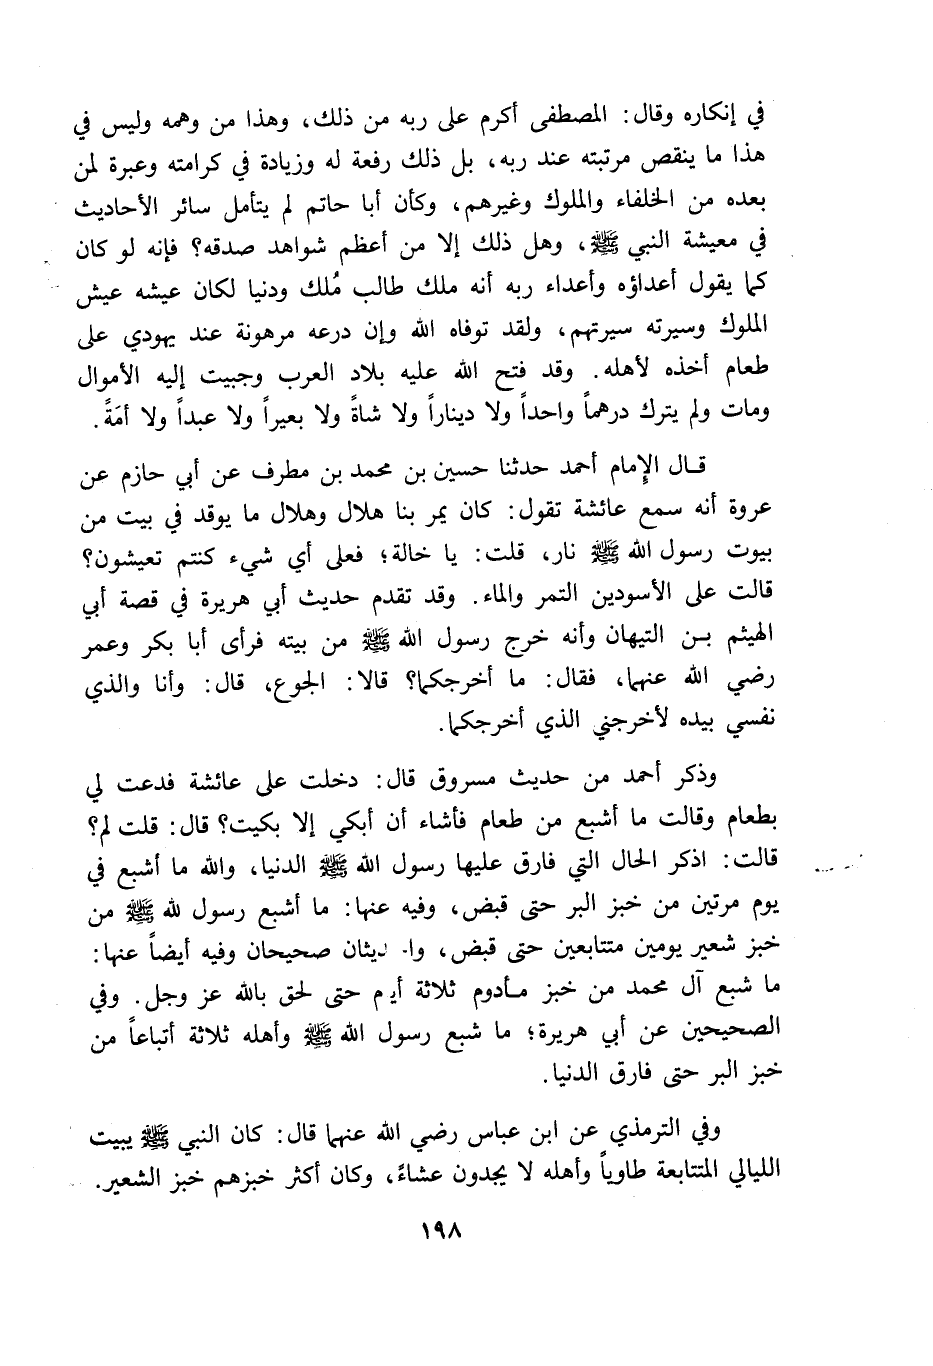 في إنكاره وقال: المصطفى أكرم على ربه من ذلك، وهذا من وهمه وليس في
هذا ما ينقص مرتبته عند ربه، بل ذلك رفعة له وزيادة في كرامته وعبرة لمن
بعده من الخلفاء والملوك وغيرهم، وكأن أبا حاتم لم يتأمل سائر الأحاديث
في معيشة النبي ﷺ، وهل ذلك إلا من أعظم شواهد صدقه؟ فإنه لو كان
كما يقول أعداؤه وأعداء ربه أنه ملك طالب مُلك ودنيا لكان عيشه عيش
الملوك وسيرته سيرتهم، ولقد توفاه الله وإن درعه مرهونة عند يهودي على
طعام أخذه لأهله. وقد فتح الله عليه بلاد العرب وجبيت إليه الأموال
ومات ولم يترك درهماً واحداً ولا ديناراً ولا شاةً ولا بعيراً ولا عبداً ولا أمَةً.
قال الإمام أحمد حدثنا حسين بن محمد بن مطرف عن أبي حازم عن
عروة أنه سمع عائشة تقول: كان يمر بنا هلال وهلال ما يوقد في بيت من
بيوت رسول الله ﷺ نار، قلت: يا خالة؛ فعلى أي شيء كنتم تعيشون؟
قالت على الأسودين التمر والماء. وقد تقدم حديث أبي هريرة في قصة أبي
الهيثم بن التيهان وأنه خرج رسول الله ﷺ من بيته فرأى أبا بكر وعمر
رضي الله عنهما، فقال: ما أخرجكما؟ قالا: الجوع، قال: وأنا والذي
نفسي بيده لأخرجني الذي أخرجكما.
وذكر أحمد من حديث مسروق قال: دخلت على عائشة فدعت لي
بطعام وقالت ما أشبع من طعام فأشاء أن أبكي إلا بكيت؟ قال: قلت لم؟
قالت: اذكر الحال التي فارق عليها رسول الله ﷺ الدنيا، والله ما أشبع في
يوم مرتين من خبز البر حتى قبض، وفيه عنها: ما أشبع رسول لله ﷺ من
خبز شعير يومين متتابعين حتى قبض، صحيحان وفيه أيضاً عنها:
ما شبع آل محمد من خبز مأدوم ثلاثة أيام حتى لحق بالله عز وجل. وفي
الصحيحين عن أبي هريرة؛ ما شبع رسول الله ﷺ وأهله ثلاثة أتباعاً من
خبز البر حتى فارق الدنيا.
وفي الترمذي عن ابن عباس رضي الله عنهما قال: كان النبي ﷺ يبيت
الليالي المتتابعة طاوياً وأهله لا يجدون عشاءً، وكان أكثر خبزهم خبز الشعير.
١٩٨